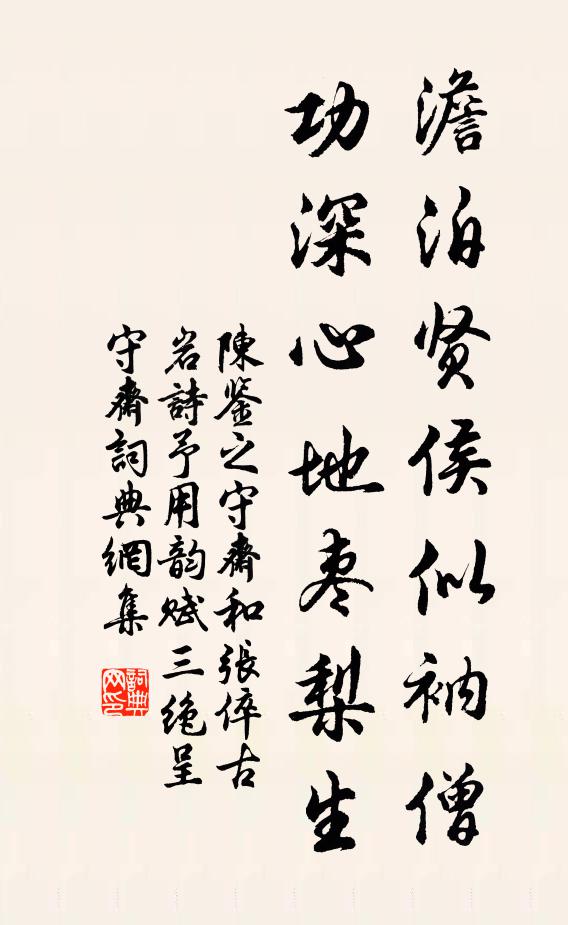 澹泊贤侯似衲僧
功深心地枣梨生
陳鉴之守齋和張倅古
岩詩予用韵赋三绝呈
守齋詞典網集
詞典网印